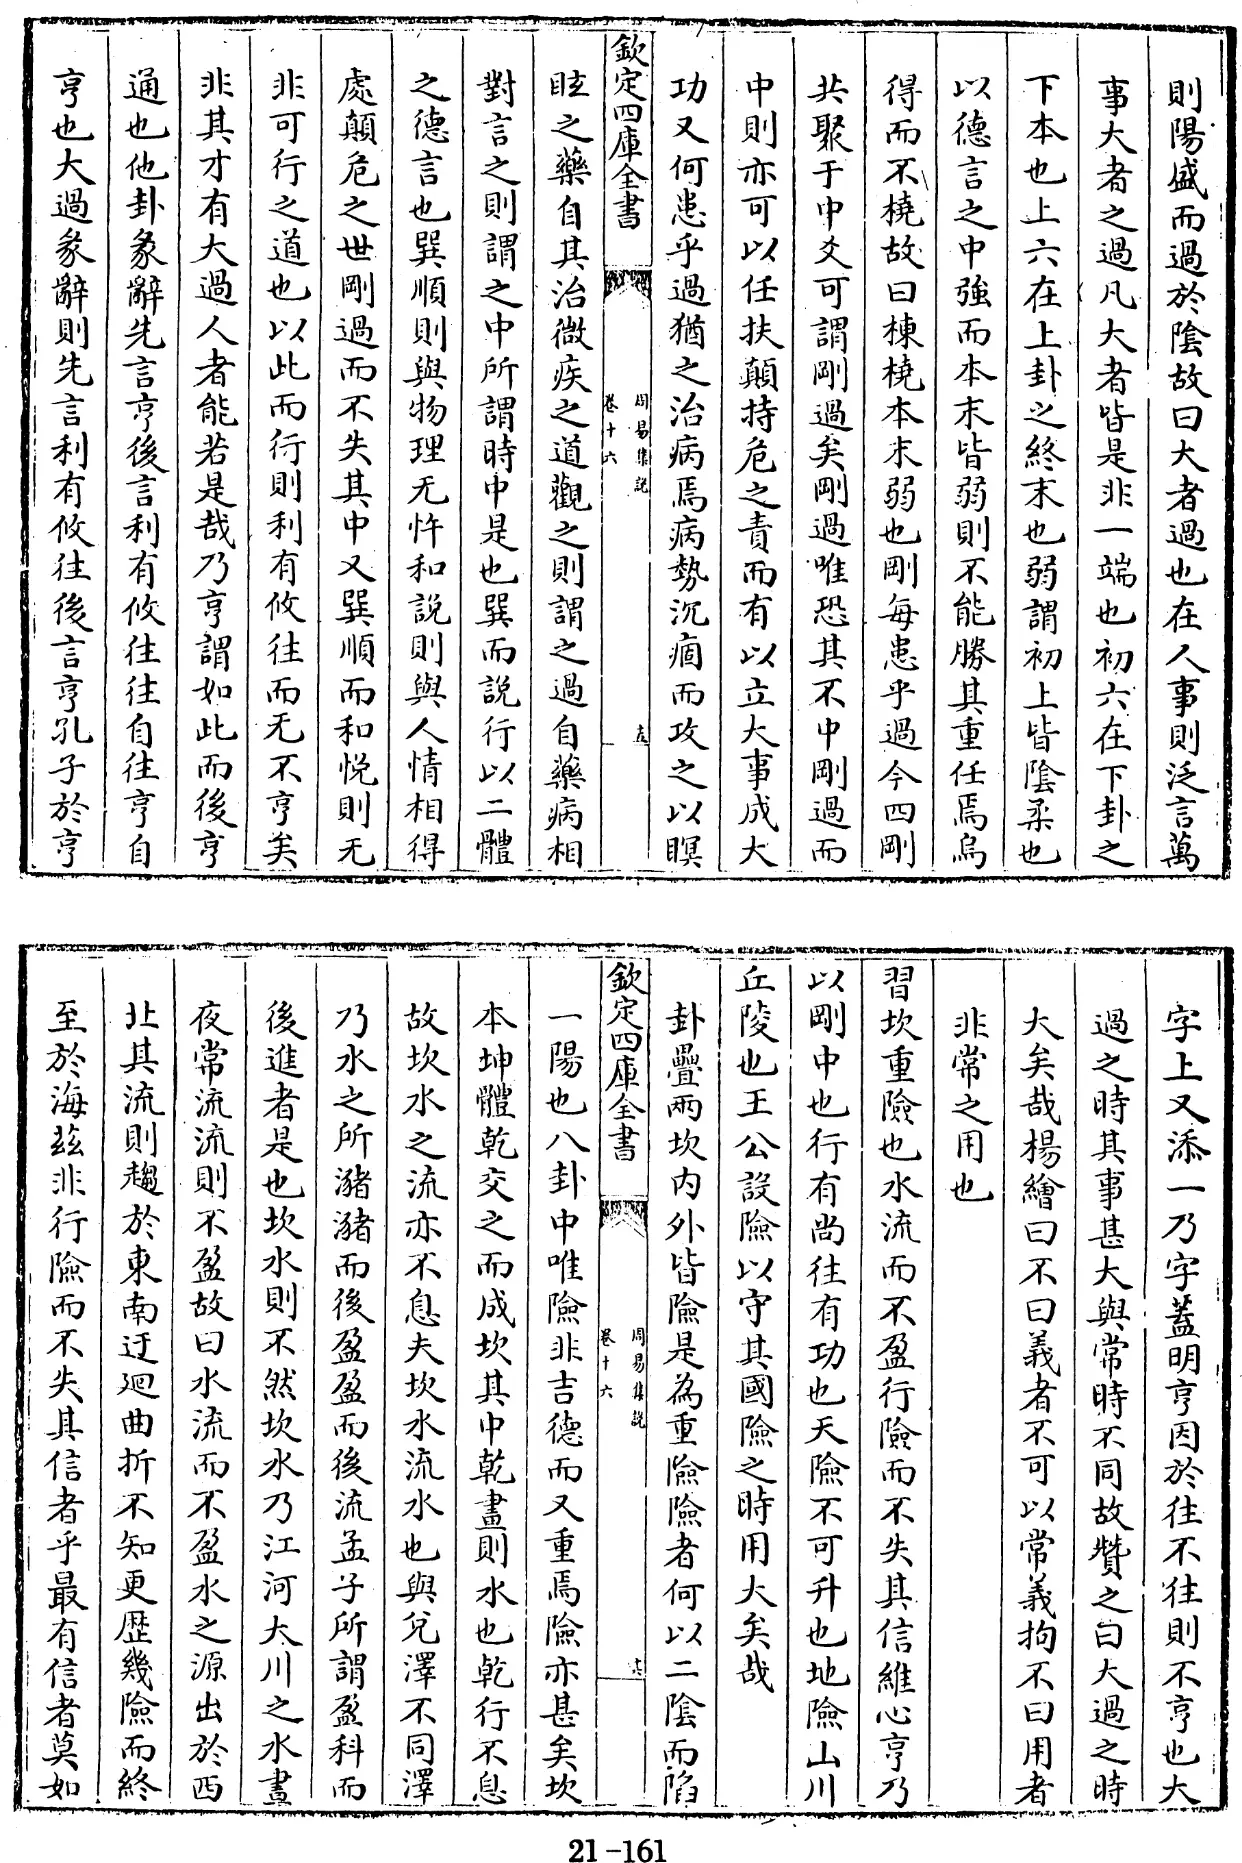 則陽盛而過於陰故曰大者過也在人事則泛言萬
事大者之過凡大者皆是非一端也初六在下卦之
下本也上六在上卦之終末也弱謂初上皆陰柔也
以德言之中強而本末皆弱則不能勝其重任焉烏
得而不橈故曰棟橈本末弱也剛每患乎過今四剛
共聚于中爻可謂剛過矣剛過唯恐其不中剛過而
中則亦可以任扶顛持危之責而有以立大事成大
功又何患乎過猶之治病焉病勢沉痼而攻之以瞑
欽定四庫全書
周易集説
卷十六
眩之藥自其治微疾之道觀之則謂之過自藥病相
對言之則謂之中所謂時中是也巽而説行以二體
之德言也巽順則與物理无忤和説則與人情相得
處顛危之世剛過而不失其中又巽順而和悦則无
非可行之道也以此而行則利有攸往而无不亨矣
非其才有大過人者能若是哉乃亨謂如此而後亨
通也他卦彖辭先言亨後言利有攸往往自往亨自
亨也大過彖辭則先言利有攸往後言亨孔子於亨
字上又添一乃字蓋明亨因於往不往則不亨也大
過之時其事甚大與常時不同故贊之曰大過之時
大矣哉楊繪曰不曰義者不可以常義拘不曰用者
非常之用也
習坎重險也水流而不盈行險而不失其信維心亨乃
以剛中也行有尚往有功也天險不可升也地險山川
丘陵也王公設險以守其國險之時用大矣哉
卦疊兩坎内外皆險是為重險險者何以二陰而陷
欽定四庫全書
周易集説
卷十六
一陽也八卦中唯險非吉德而又重焉險亦甚矣坎
本坤體乾交之而成坎其中乾畫則水也乾行不息
故坎水之流亦不息夫坎水流水也與兌澤不同澤
乃水之所瀦瀦而後盈盈而後流孟子所謂盈科而
後進者是也坎水則不然坎水乃江河大川之水晝
夜常流流則不盈故曰水流而不盈水之源出於西
北其流則趨於東南迂迴曲折不知更歴幾險而終
至於海兹非行險而不失其信者乎最有信者莫如
21-161